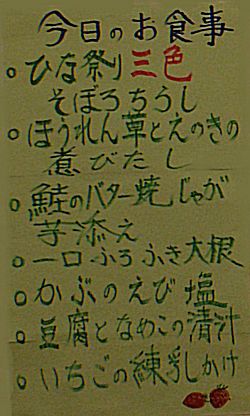 今日のお食事
ひな祭り三色
そぼろちらし
ほうれん草とえのきの
煮びたし
鮭のバター焼じゃが
芋添え
一口ふろふき大根
かぶのえび塩
豆腐となめこの清汁
いちごの練乳かけ